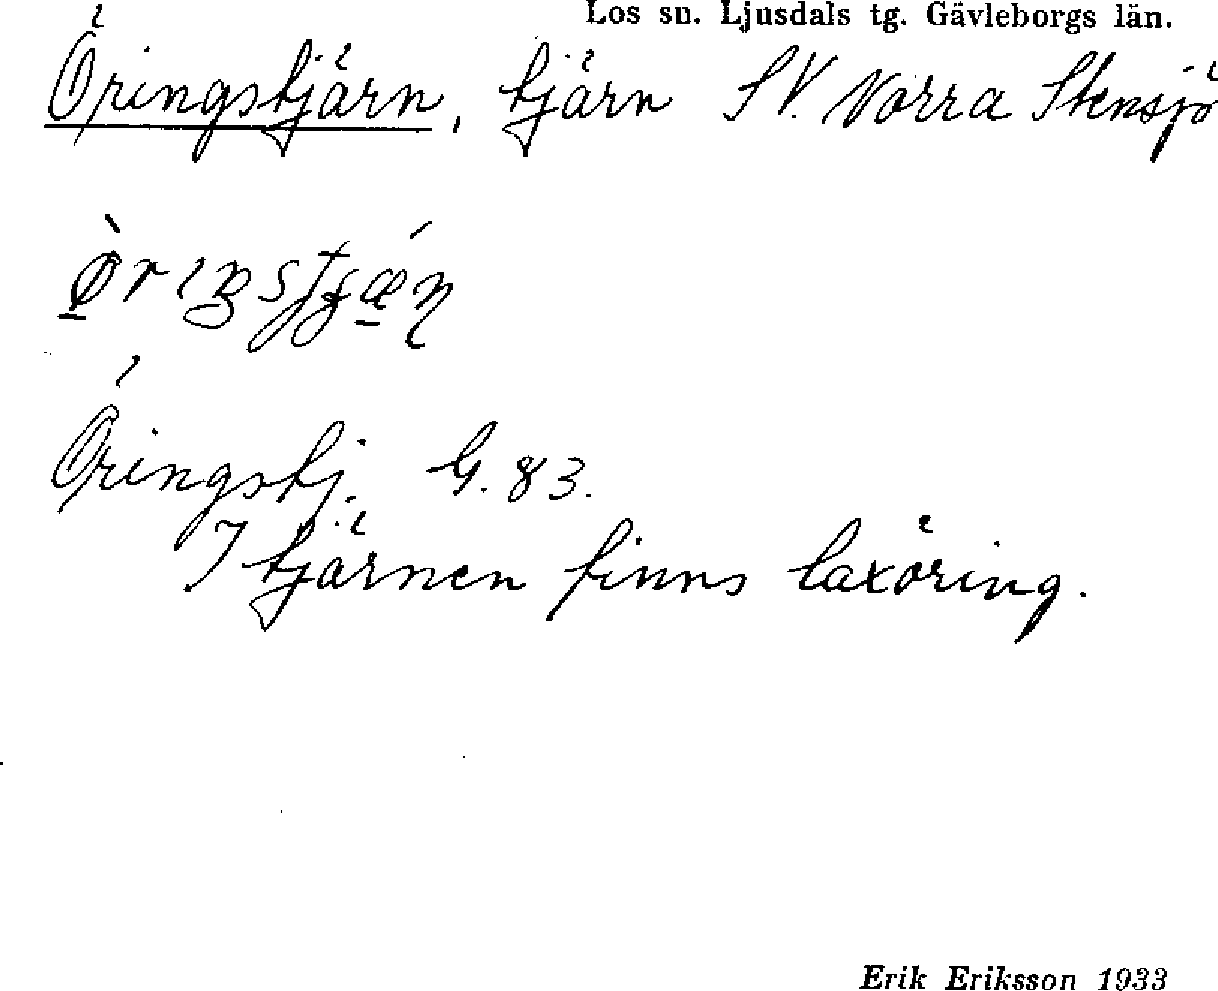 Los sn. Ljusdals tg. Gävleborgs län.
Öringstjärn, tjärn SV. Norra Stensjö
Öringstj. G. 83.
I tjärnen finns laxöring.
Erik Eriksson 1933